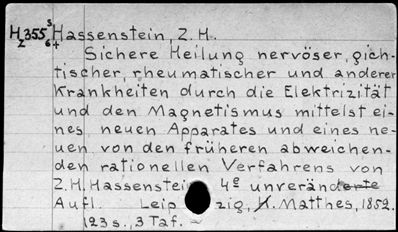 H₂355⁵₆₊ Hassenstein, Z. H.
Sichere Heilung nervöser, gich-
tischer, rheumatischer und anderer
Krankheiten durch die Elektrizität
und den Magnetismus mittelst ei-
nes neuen Apparates und eines ne-
uen von den früheren abweichen-
den rationellen Verfahrens von
Z. H. Hassenstein 4º unveränderte
Aufl. Leipzig, H. Matthes, 1852.
123 s., 3 Taf. –